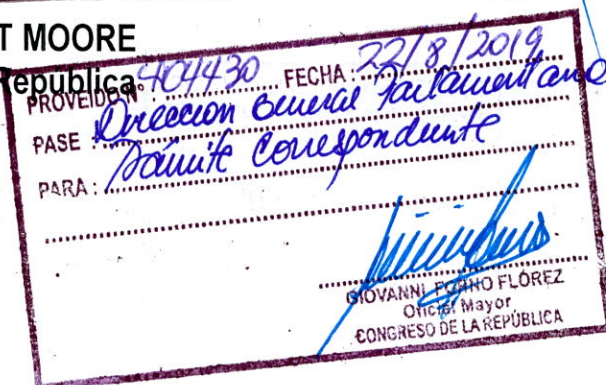 T MOORE
República
PROVEIDO N° 404430 FECHA: 22/8/2019
PASE: Dirección General Parlamentario
PARA: Trámite Correspondiente
GIOVANNI FORNO FLÓREZ
Oficial Mayor
CONGRESO DE LA REPÚBLICA